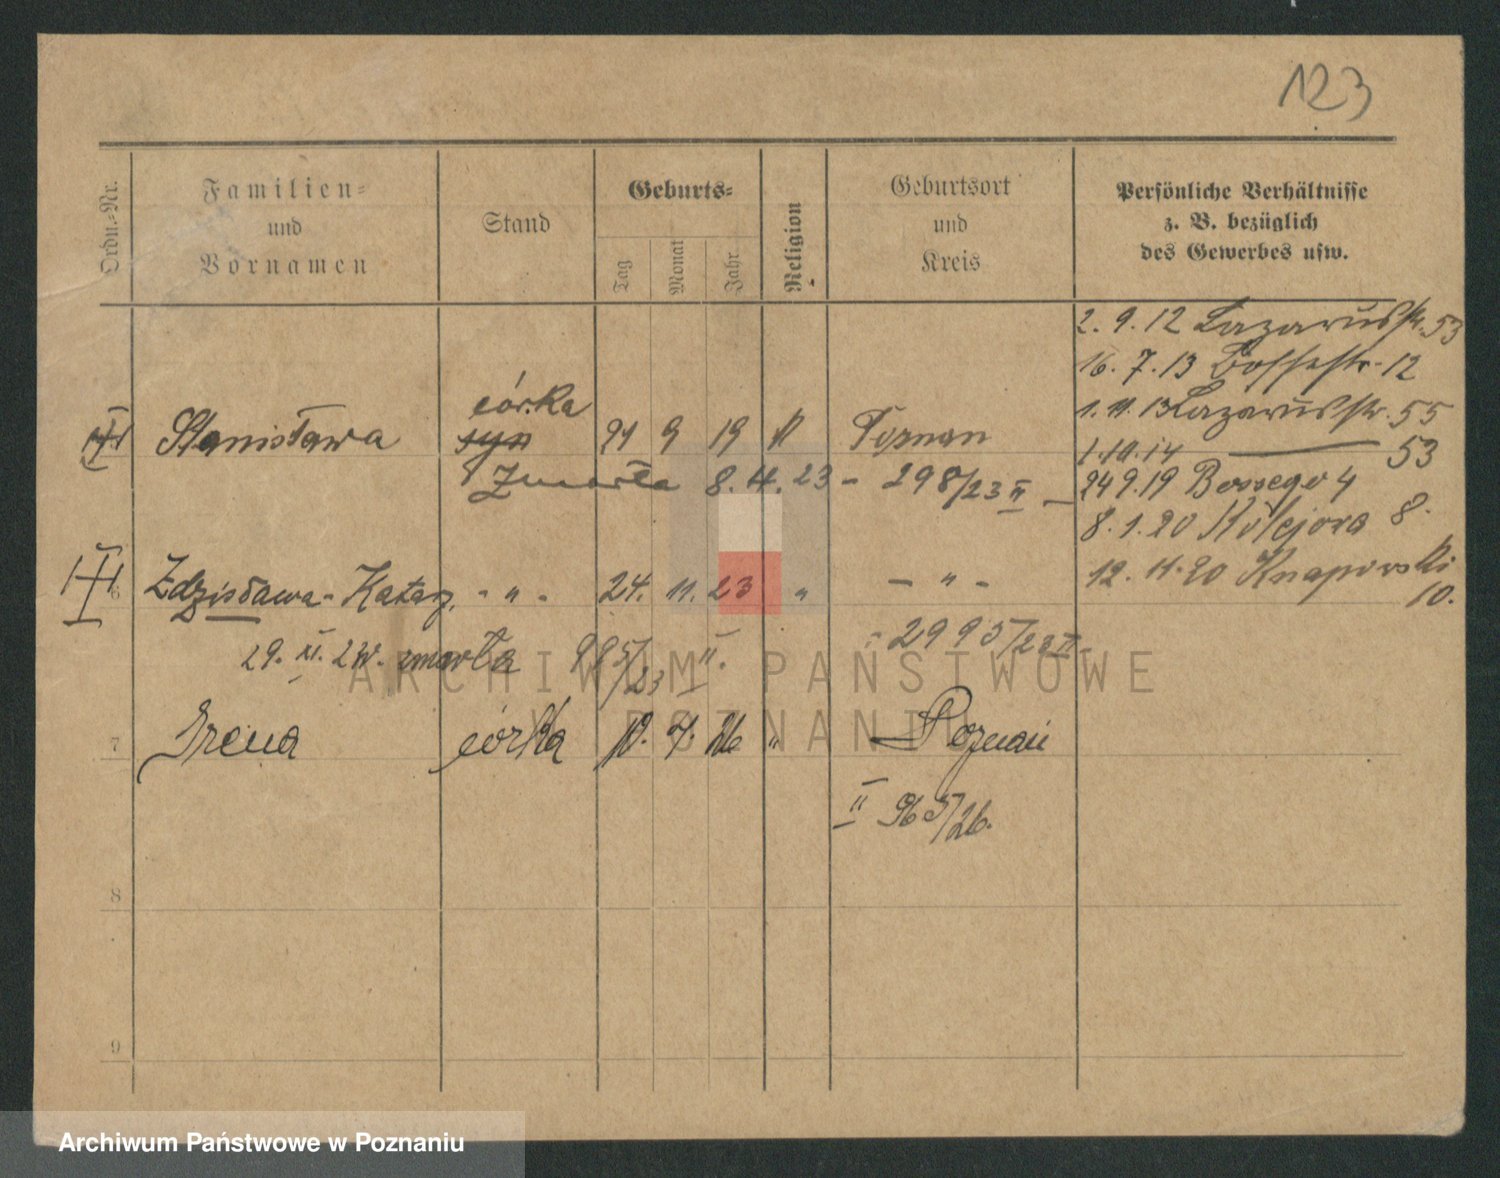 123
Ordn.-Nr.
Familien-
und
Vornamen
Stand
Geburts-
Tag
Monat
Jahr
Religion
Geburtsort
und
Kreis
Persönliche Verhältnisse
z. B. bezüglich
des Gewerbes usw.
2. 9. 12 Lazarusstr. 53
16. 7. 13 Bossestr. 12
1. 11. 13 Lazarusstr. 55
1.10.14 — 53
24 9.19 Bossego 4
8. 1. 20 Kolejowa 8.
12. 11. 20 Knapowski
10.
córka
Stanisława syn 21 9 19 K Poznan
Zmarła 8. 4. 23 - 298/23 II
6 Zdzisława-Katarz. - " - 24. 11. 23 " - " -
2995/23 II
29. XI. zmarła 985/23 II.
7 Irena córka 10. 4. 26 " Poznań
II 965/26.
8
9
ARCHIWUM PAŃSTWOWE
W POZNANIU
Archiwum Państwowe w Poznaniu